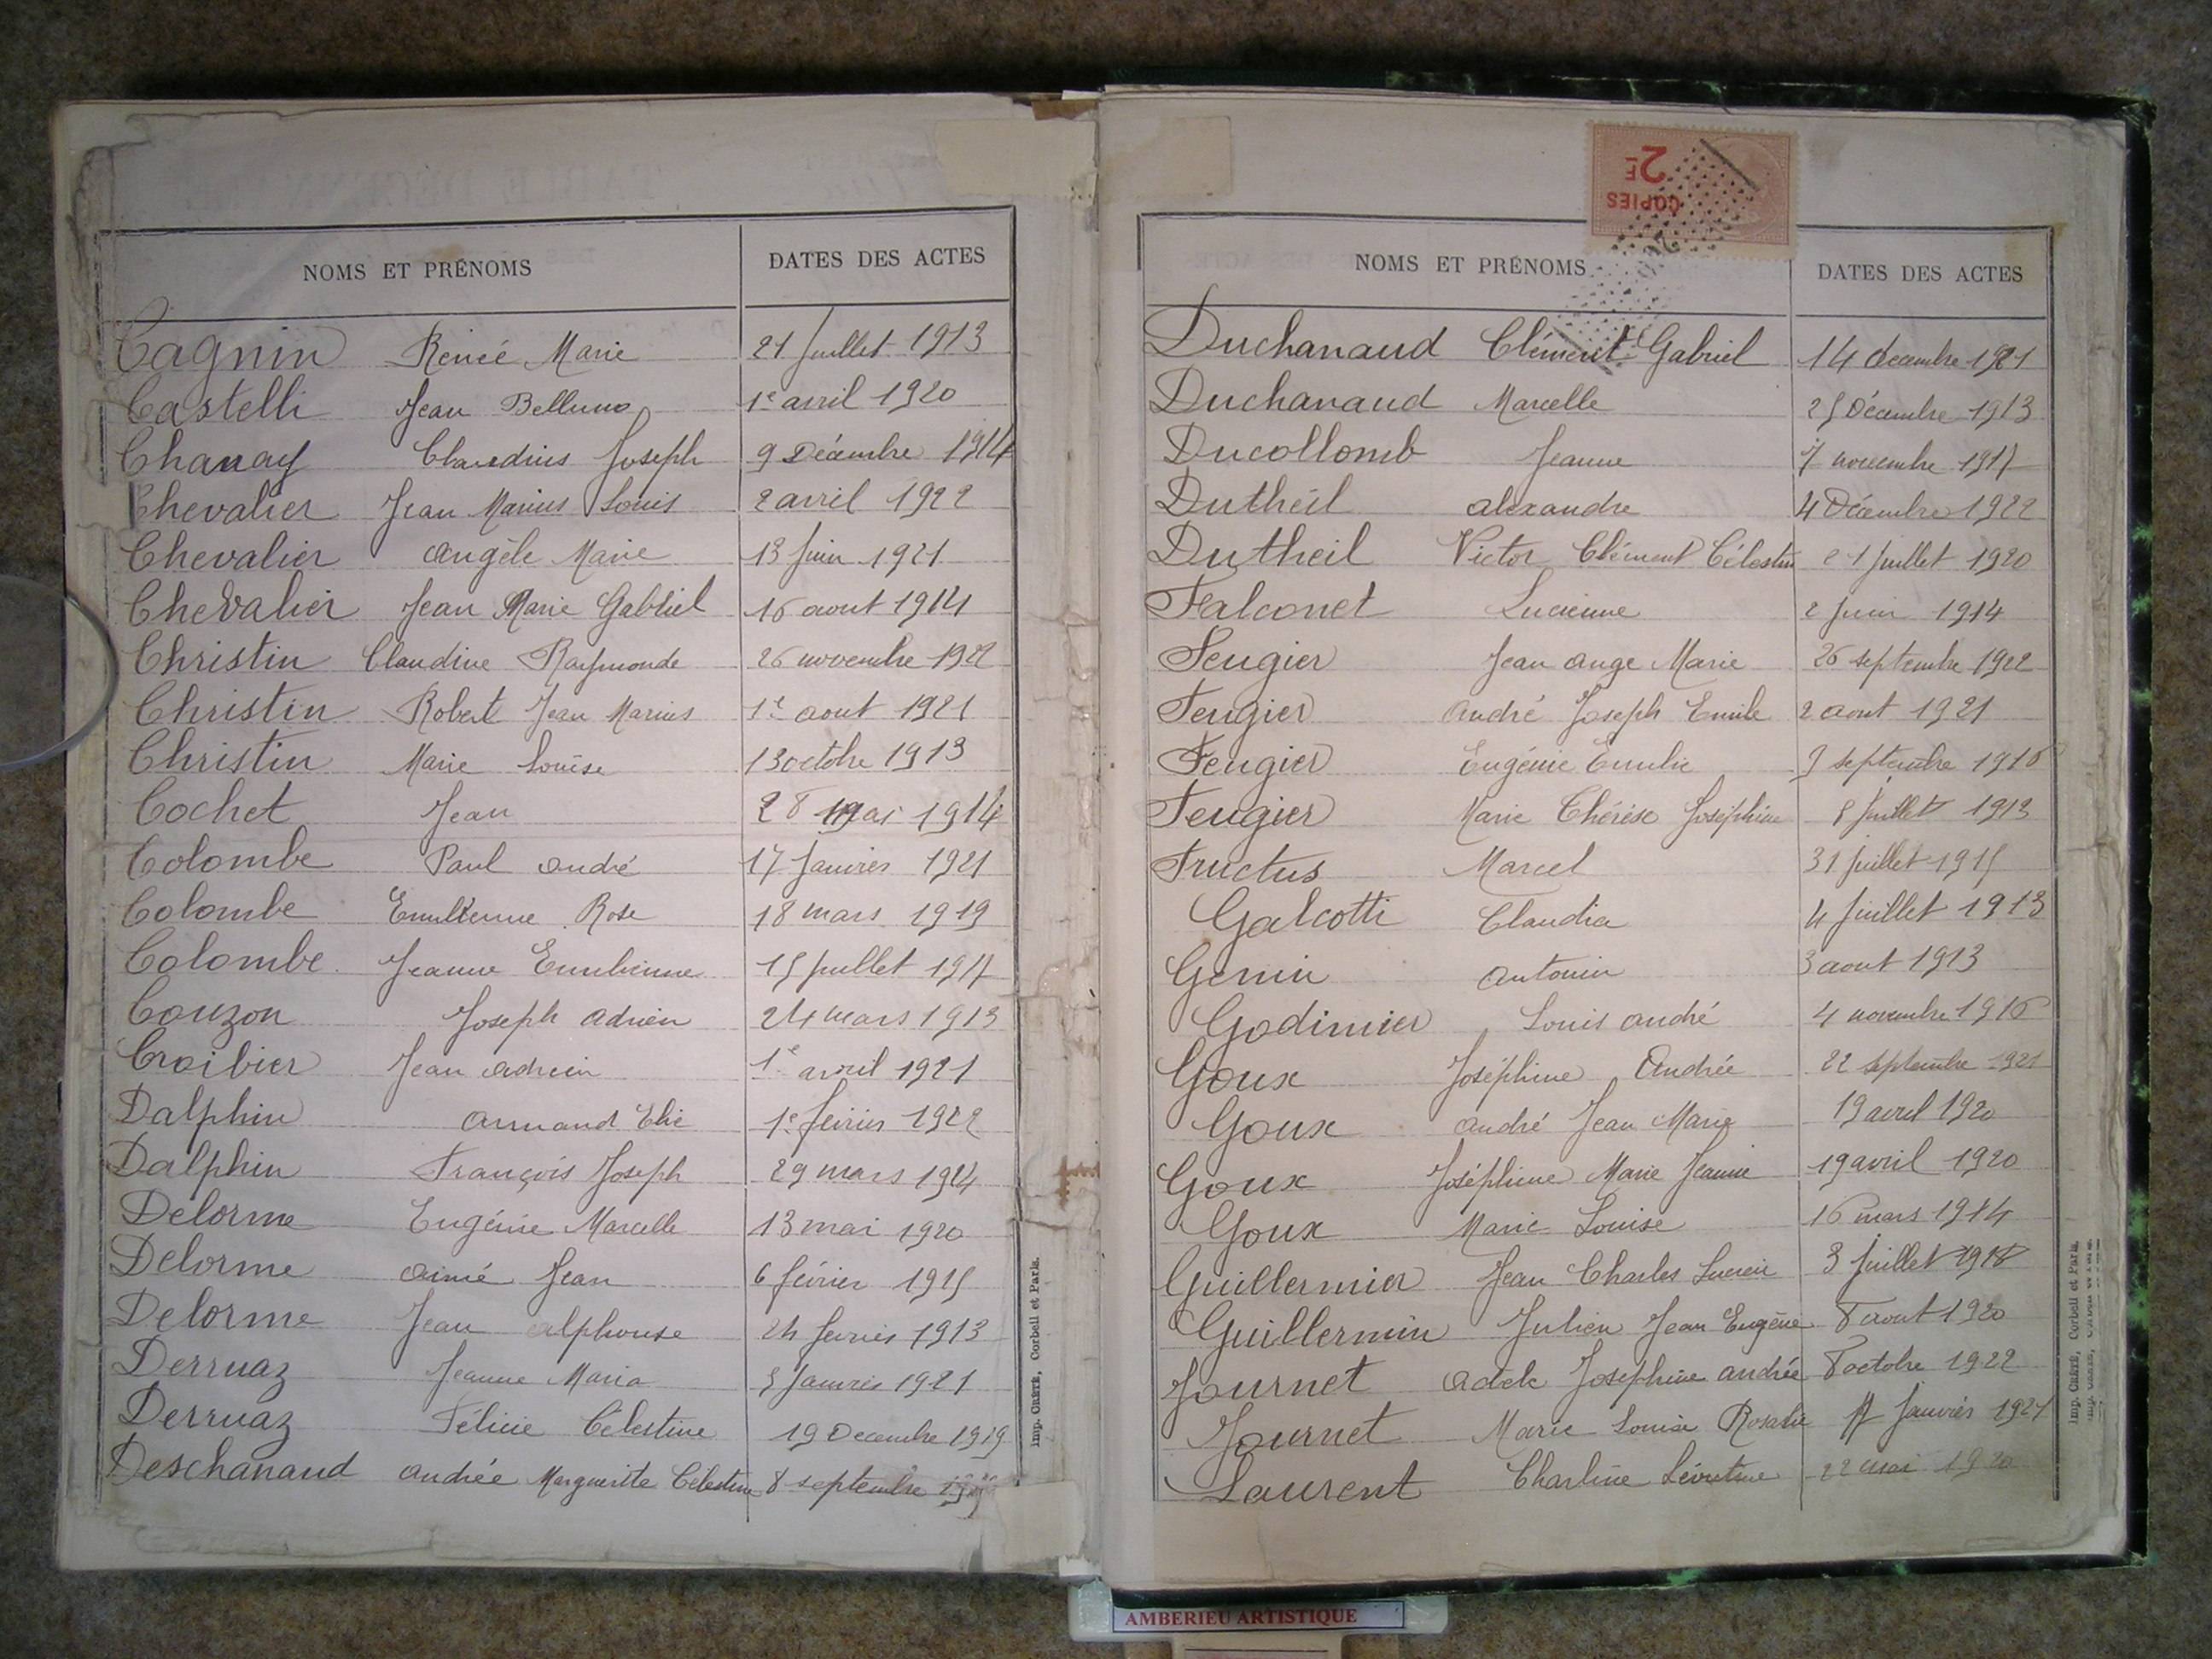 NOMS ET PRÉNOMS DATES DES ACTES
Cagnin Renée Marie 21 Juillet 1913
Castelli Jean Belluno 1e avril 1920
Chanay Claudius Joseph 9 Décembre 1914
Chevalier Jean Marius Louis 2 avril 1922
Chevalier Angèle Marie 13 Juin 1921
Chevalier Jean Marie Gabriel 16 aout 1914
Christin Claudine Raymonde 26 novembre 1922
Christin Robert Jean Marius 1e aout 1921
Christin Marie Louise 13 octobre 1913
Cochet Jean 28 mai 1914
Colombe Paul André 17 Janvier 1921
Colombe Emilienne Rose 18 mars 1919
Colombe Jeanne Emilienne 15 Juillet 1917
Couzon Joseph Adrien 24 mars 1913
Croibier Jean Adrien 1e avril 1921
Dalphin Armand Elie 1e février 1922
Dalphin François Joseph 29 mars 1914
Delorme Eugénie Marcelle 13 mai 1920
Delorme Aimé Jean 6 février 1915
Delorme Jean Alphonse 24 fevrier 1913
Derruaz Jeanne Maria Janvier 1921
Derruaz Félicie Célestine 19 Decembre 1919
Deschanaud Andrée Marguerite Célestine 8 septembre
Imp. CRÉTÉ, Corbeil et Paris.
COPIES
2F
NOMS ET PRÉNOMS DATES DES ACTES
Duchanaud Clément Gabriel 14 decembre 1921
Duchanaud Marcelle 25 Décembre 1913
Ducollomb Jeanne 7 novembre 1917
Dutheil Alexandre 4 Décembre 1922
Dutheil Victor Clément Célestin 21 Juillet 1920
Falconet Lucienne 2 Juin 1914
Feugier Jean Ange Marie 26 septembre 1922
Feugier André Joseph Emile 2 aout 1921
Feugier Eugénie Emilie 9 septembre 1916
Feugier Marie Thérèse Joséphine Juillet 1913
Fructus Marcel 31 Juillet 1915
Galcotti Claudia 4 Juillet 1913
Genin Antonin 3 aout 1913
Godimier Louis André 4 novembre 1916
Goux Joséphine Andrée 22 septembre 1921
Goux André Jean Marie 19 avril 1920
Goux Joséphine Marie Jeanne 19 avril 1920
Goux Marie Louise 16 mars 1914
Guillermier Jean Charles Lucien 3 Juillet
Guillermin Julien Jean Eugène 8 aout 1920
Journet Adèle Josephine Andrée 8 octobre 1922
Journet Marie Louise Rosalie 17 Janvier 1921
Laurent Charline Léontine 22 mai 1920
Imp. CRÉTÉ, Corbeil et Paris.
AMBERIEU ARTISTIQUE